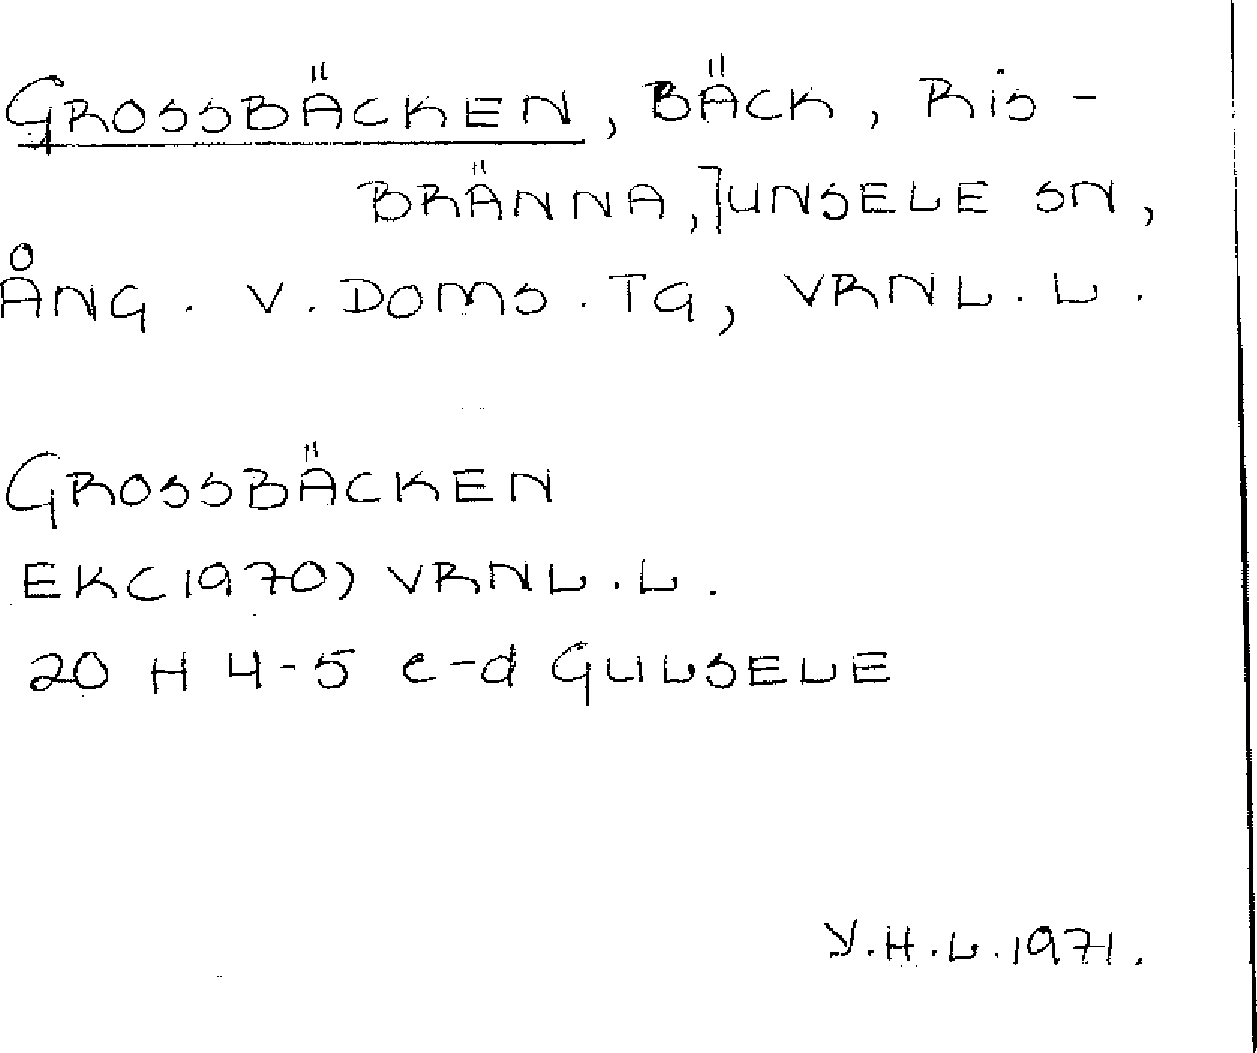 GROSSBÄCKEN, BÄCK, RIS-
BRÄNNA, JUNSELE SN,
ÅNG. V. DOMS. TG, VRNL. L.
GROSSBÄCKEN
EK(1970) VRNL. L.
20 H 4-5 c-d GULSELE
Y.H.L. 1971.